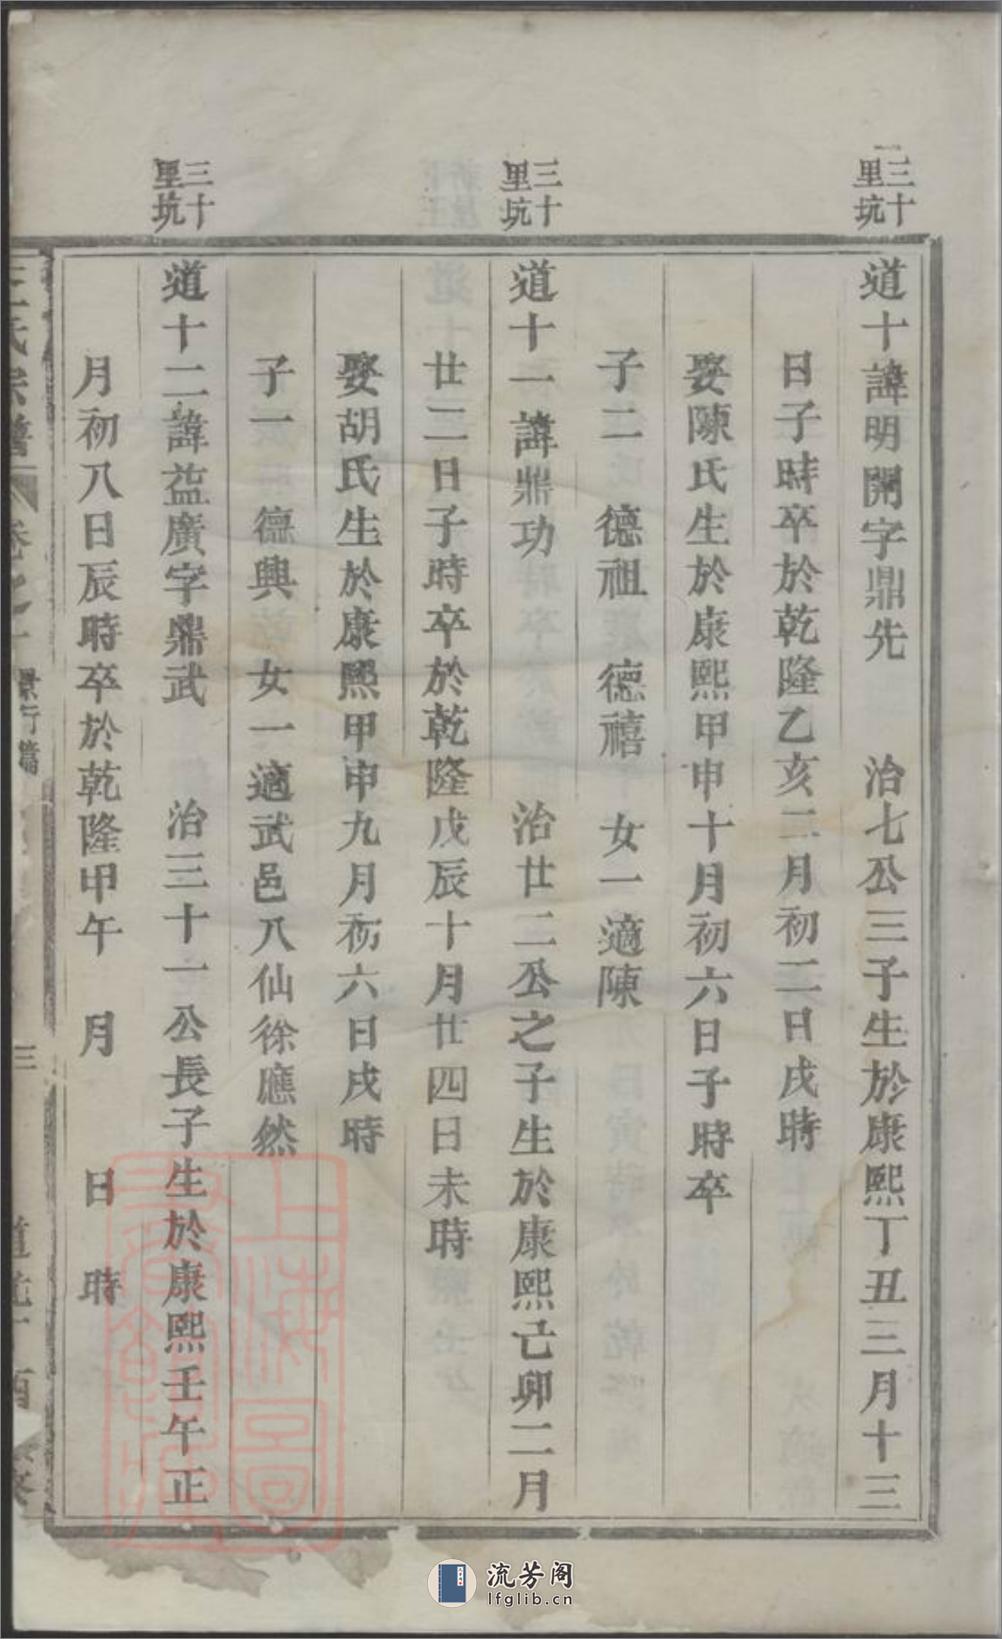 三十
里坑
道十諱明開字鼎先　治七公三子生於康熙丁丑三月十三
日子時卒於乾隆乙亥二月初二日戌時
娶陳氏生於康熙甲申十月初六日子時卒
子二　德祖　德禧　女一適陳
三十
里坑
道十一諱鼎功　治廿二公之子生於康熙己卯二月
廿二日子時卒於乾隆戊辰十月廿四日未時
娶胡氏生於康熙甲申九月初六日戌時
子一　德興　女一適武邑八仙徐應然
三十
里坑
道十二諱益廣字鼎武　治三十一公長子生於康熙壬午正
月初八日辰時卒於乾隆甲午　月　日　時
王氏宗譜
景行篇
三
上海圖
書館藏
流芳阁
lfglib.cn